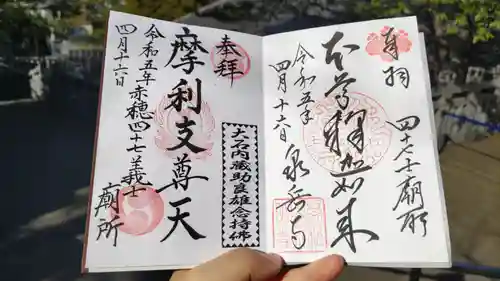 奉拝
四十七士廟所
本尊釈迦如来
令和五年
四月十六日
泉岳寺
奉拝
摩利支尊天
大石内蔵助良雄念持佛
令和五年赤穂四十七義士
四月十六日
廟所